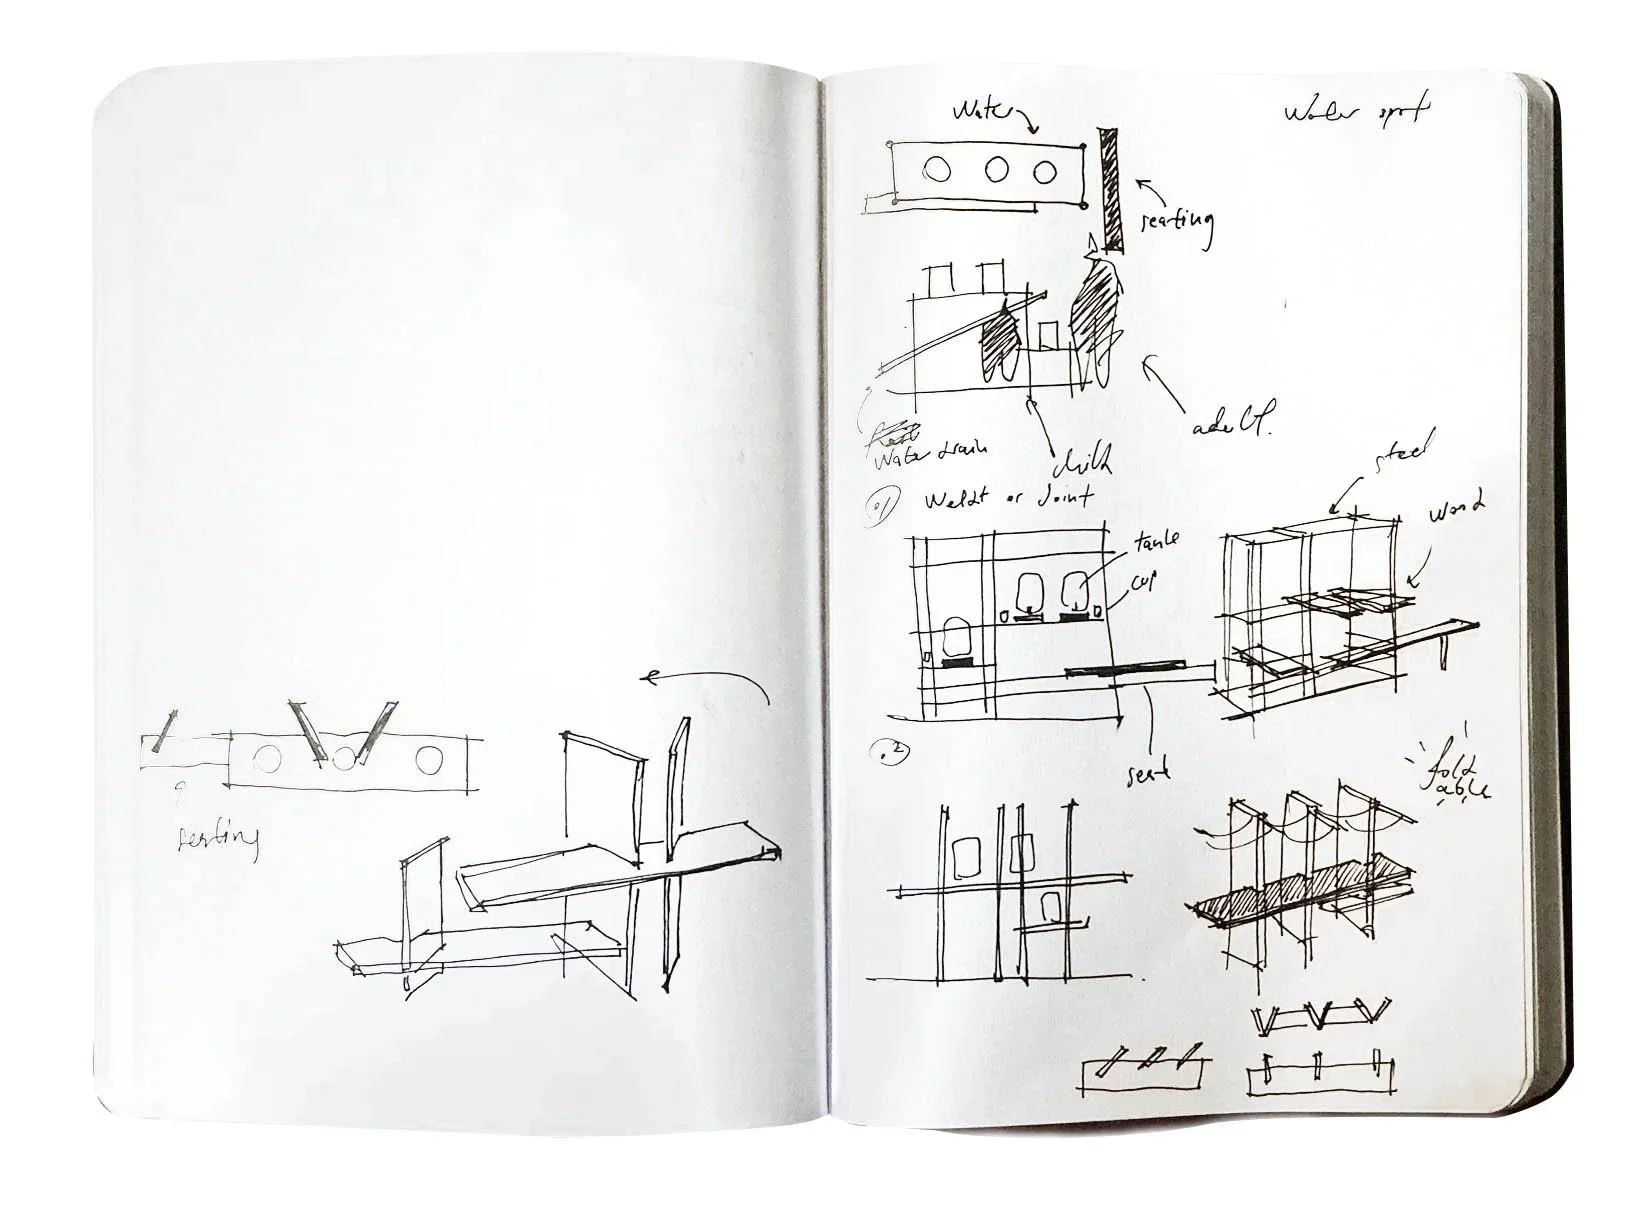 seating
Water
Water spot
seating
adult.
Water drain
child
.1 Weldt or Joint
steel
wood
tank
cup
seat
.2
fold
able